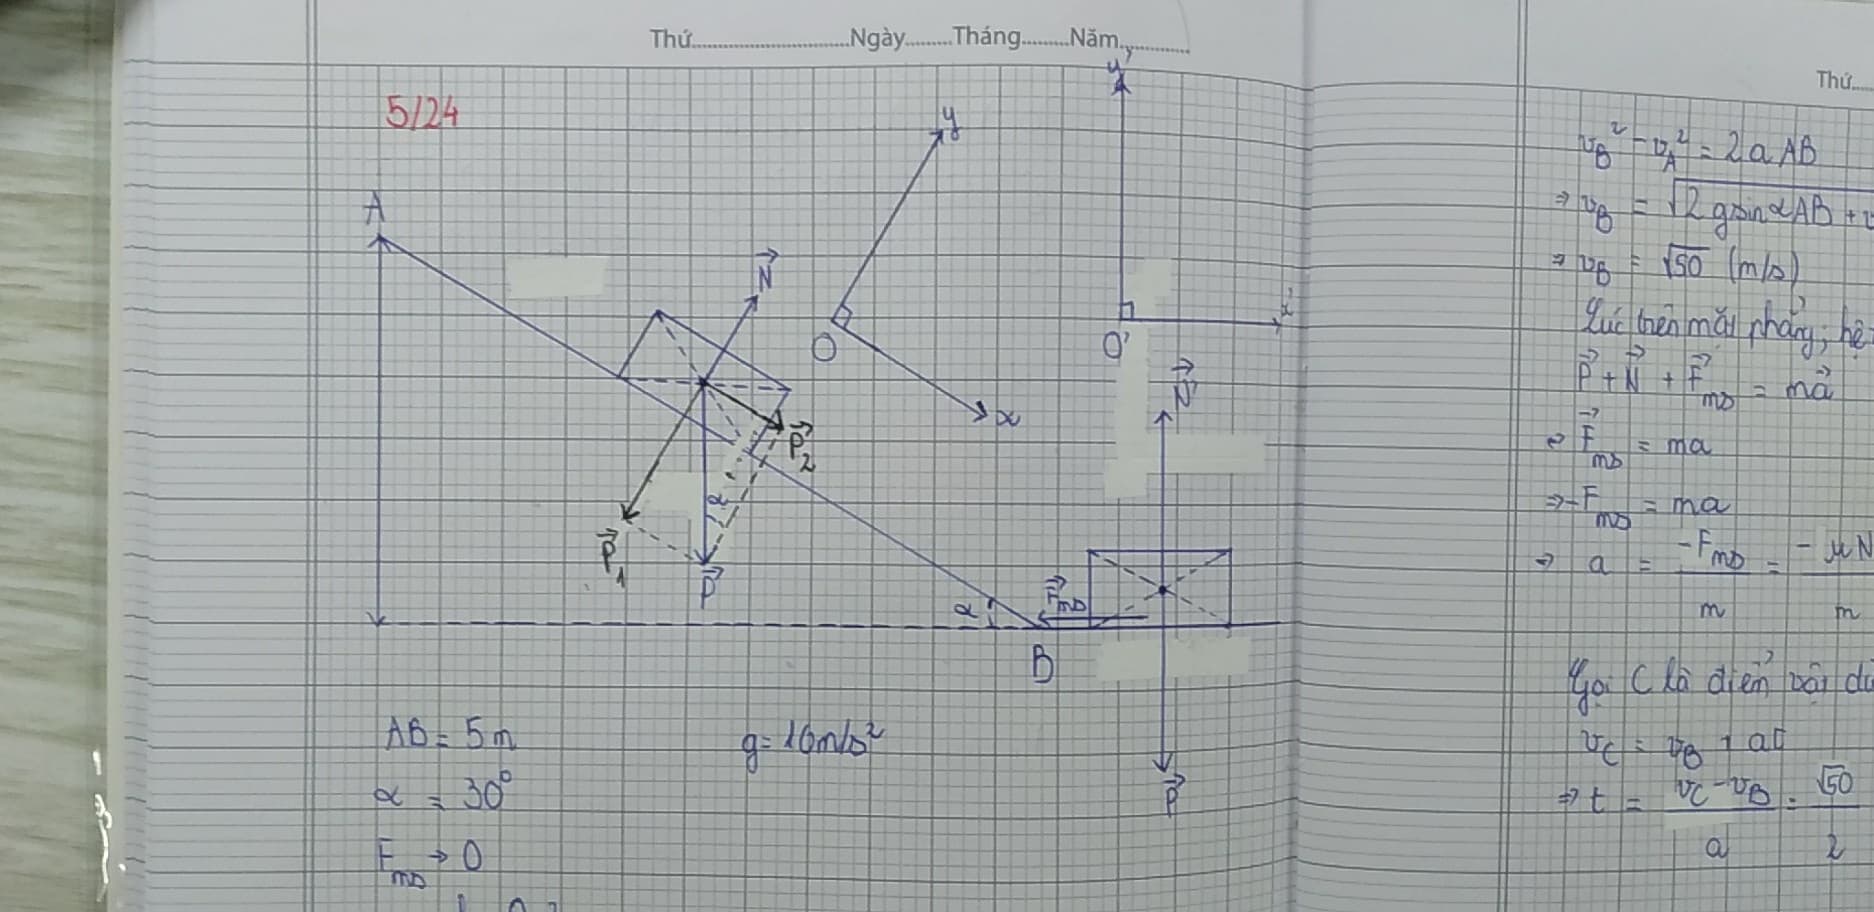 Thứ..........Ngày.........Tháng.........Năm............
5/24
y
y'
A
N⃗
O
x
O'
x'
N⃗'
P⃗₂
α
P⃗₁
P⃗
α
F⃗ms
B
P⃗
AB = 5m
g = 10m/s²
α = 30°
Fms → 0
Thứ
v_B² - v_A² = 2aAB
⇒ v_B = √2gsinαAB +
⇒ v_B = √50 (m/s)
Lúc trên mặt phẳng, hệ
P⃗ + N⃗ + F⃗ms = ma⃗
⇒ F⃗ms = ma
⇒ -Fms = ma
⇒ a = -Fms/m = -μN/m
Gọi C là điểm vật
v_C = v_B + at
⇒ t = (v_C - v_B)/a = √50/2